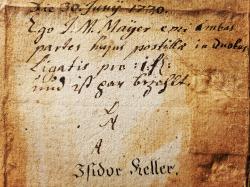 Die 30 Junij 1730.
Ego J. M. Mayer emi ambas
partes hujus postillæ in duobus
Ligatis pro : 1 f :
und ist par bezahlt.
A
Isidor Keller.